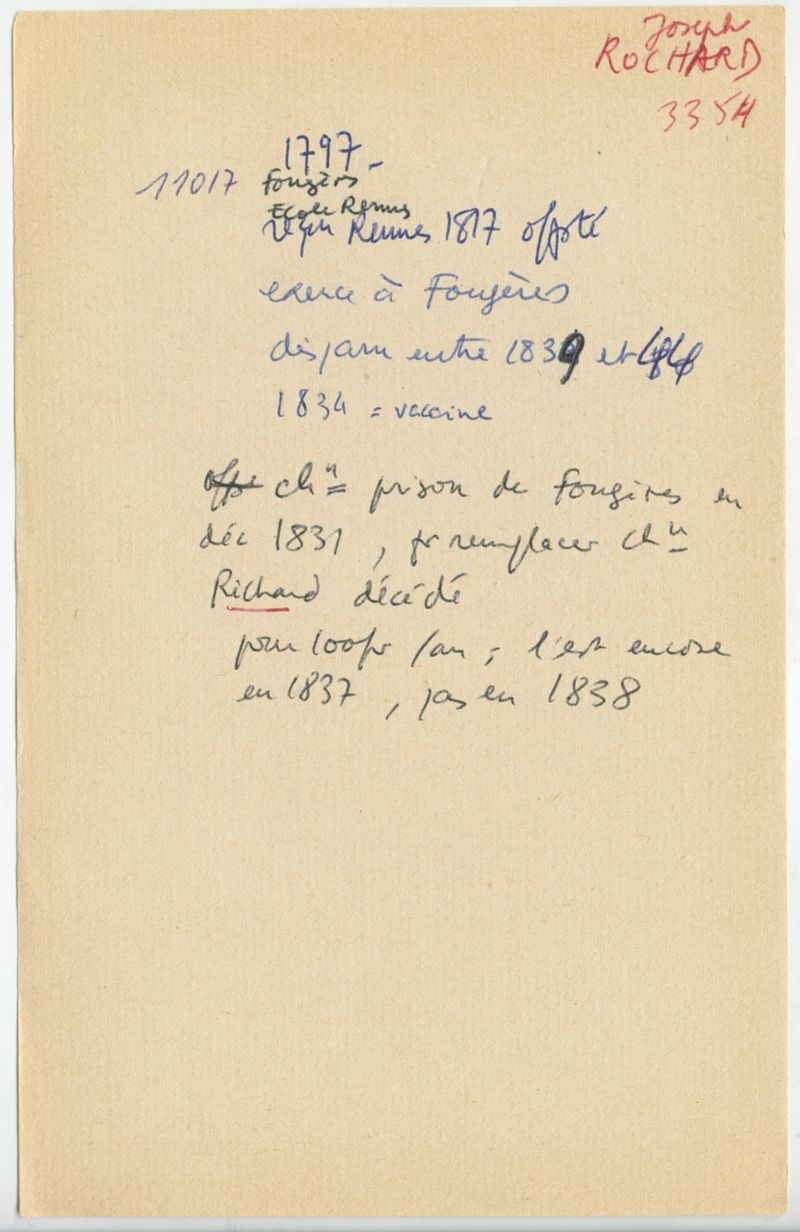 Joseph
ROCHARD
3354
1797 -
11017 Fougères
Ecole Rennes
reçu Rennes 1817 off sté
exerce à Fougères
disparu entre 1839 et 44
1834 = vaccine
offs chn prison de Fougères en
déc 1831, pr remplacer chn
Richard décédé
pour 100fr /an ; l'est encore
en 1837, pas en 1838